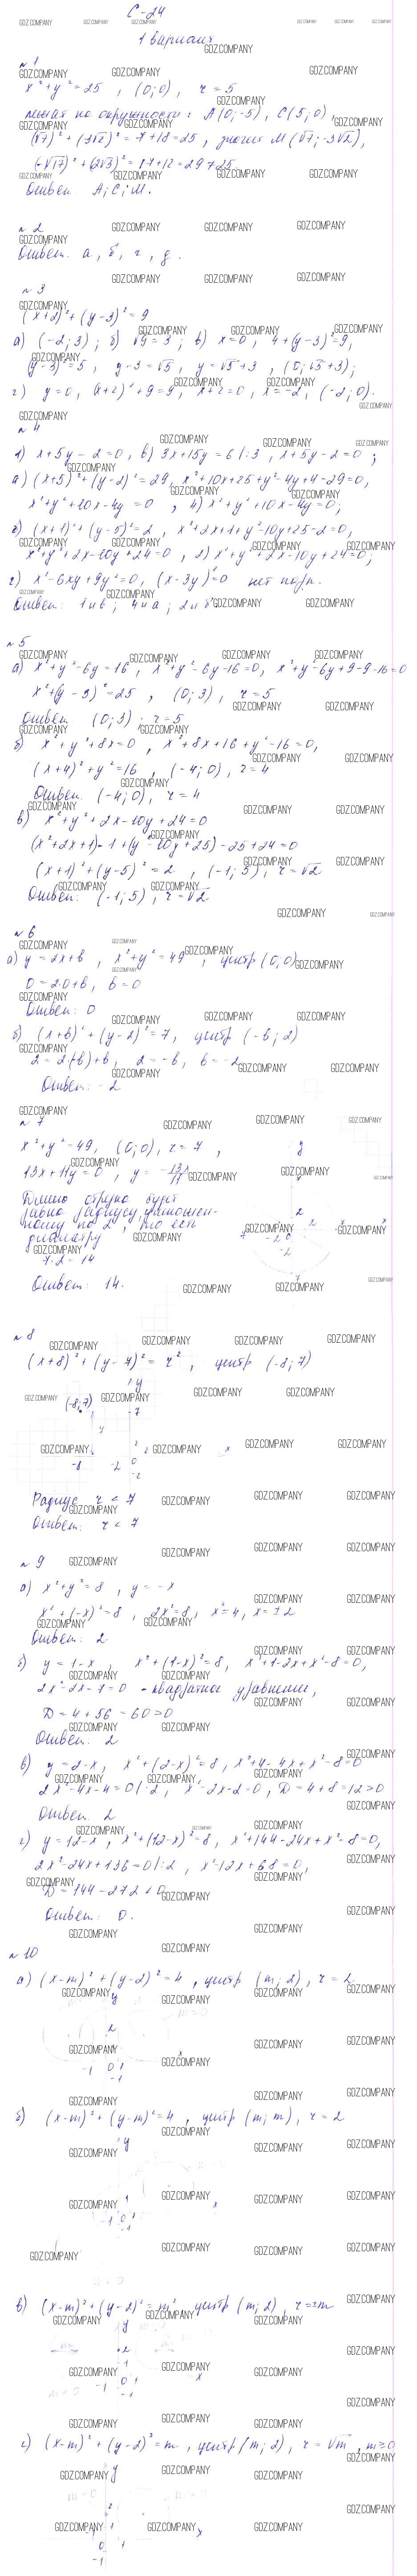 С-24
1 вариант
№ 1
x² + y² = 25, (0; 0), r = 5
лежат на окружности: A(0; -5), C(5; 0),
(√7)² + (3√2)² = 7+18 = 25, значит M(√7; -3√2),
(-√17)² + (2√3)² = 17+12 = 29 ≠ 25.
Ответ: A; C; M.
№ 2
Ответ: а, б, г, д.
№ 3
(x+2)² + (y-3)² = 9
а) (-2; 3); б) √9 = 3; в) x=0, 4+(y-3)²=9,
(y-3)² = 5, y-3 = √5, y = √5+3, (0; √5+3);
г) y=0, (x+2)²+9=9, x+2=0, x=-2, (-2; 0).
№ 4
1) x+5y-2=0, в) 3x+15y=6 | :3, x+5y-2=0;
а) (x+5)² + (y-2)² = 29, x²+10x+25+y²-4y+4-29=0,
x²+y²+10x-4y=0, 4) x²+y²+10x-4y=0;
б) (x+1)² + (y-5)² = 2, x²+2x+1+y²-10y+25-2=0,
x²+y²+2x-10y+24=0, 2) x²+y²+2x-10y+24=0;
г) x²-6xy+9y²=0, (x-3y)²=0 нет
Ответ: 1 и в; 4 и а; 2 и б.
№ 5
а) x²+y²-6y=16, x²+y²-6y-16=0, x²+y²-6y+9-9-16=0
x²+(y-3)²=25, (0; 3), r=5
Ответ: (0; 3); r=5
б) x²+y²+8x=0, x²+8x+16+y²-16=0,
(x+4)²+y²=16, (-4; 0), r=4
Ответ: (-4; 0), r=4
в) x²+y²+2x-10y+24=0
(x²+2x+1)-1+(y²-10y+25)-25+24=0
(x+1)²+(y-5)²=2, (-1; 5), r=√2
Ответ: (-1; 5), r=√2
№ 6
а) y=2x+b, x²+y²=49, центр (0; 0)
0=2·0+b, b=0
Ответ: 0
б) (x+b)²+(y-2)²=7, центр (-b; 2)
2=2(-b)+b, 2=-b, b=-2
Ответ: -2
№ 7
x²+y²=49, (0; 0), r=7,
13x+11y=0, y=-13x/11
Длина отрезка будет
равна радиусу, умножен-
ному на 2, то есть
диаметру
7·2=14
Ответ: 14.
№ 8
(x+8)²+(y-7)²=r², центр (-8; 7)
(-8; 7)
Радиус r < 7
Ответ: r < 7
№ 9
а) x²+y²=8, y=-x
x²+(-x)²=8, 2x²=8, x²=4, x=±2
Ответ: 2
б) y=1-x, x²+(1-x)²=8, x²+1-2x+x²-8=0,
2x²-2x-7=0 - квадратное уравнение,
D=4+56=60>0
Ответ: 2
в) y=2-x, x²+(2-x)²=8, x²+4-4x+x²-8=0
2x²-4x-4=0 | :2, x²-2x-2=0, D=4+8=12>0
Ответ: 2
г) y=12-x, x²+(12-x)²=8, x²+144-24x+x²-8=0,
2x²-24x+136=0 | :2, x²-12x+68=0,
D=144-272<0
Ответ: 0.
№ 10
а) (x-m)²+(y-2)²=4, центр (m; 2), r=2
б) (x-m)²+(y-m)²=4, центр (m; m), r=2
в) (x-m)²+(y-2)²=m², центр (m; 2), r=±m
г) (x-m)²+(y-2)²=m, центр (m; 2), r=√m, m≥0
GDZ.COMPANY